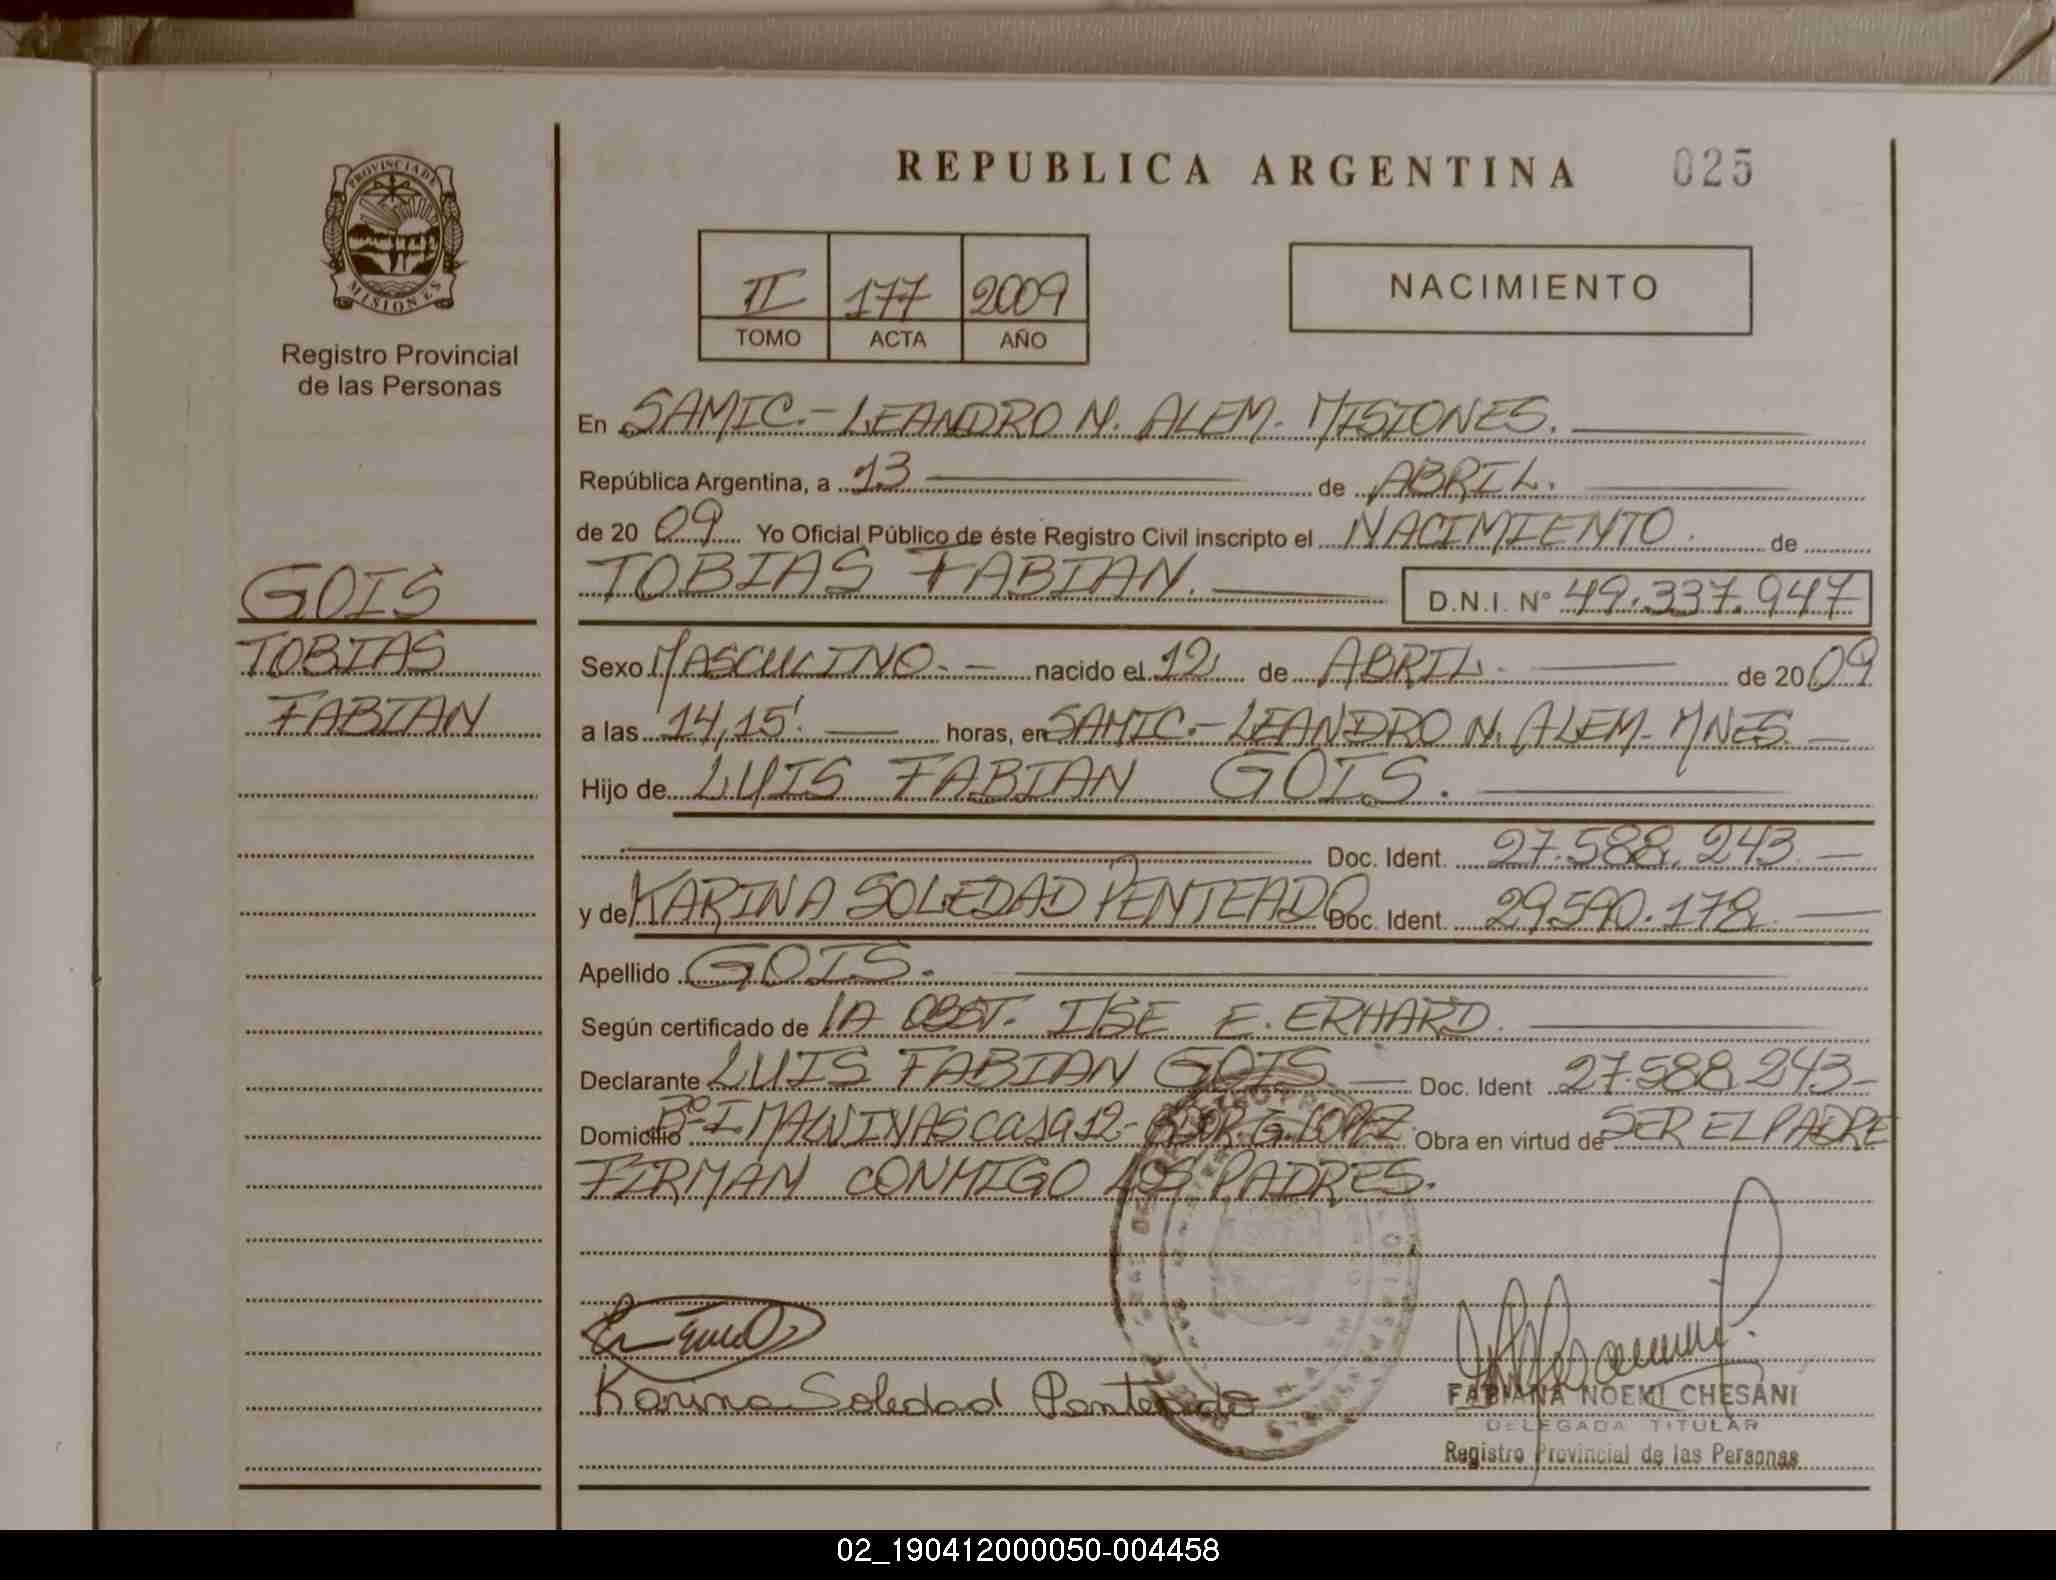 REPUBLICA ARGENTINA 025
PROVINCIA DE
MISIONES
Registro Provincial
de las Personas
II 177 2009
TOMO ACTA AÑO
NACIMIENTO
En SAMIC.- LEANDRO N. ALEM- MISIONES.
República Argentina, a 13 de ABRIL.
de 20 09 Yo Oficial Público de éste Registro Civil inscripto el NACIMIENTO de
TOBIAS FABIAN. D.N.I. Nº 49.337.947
GOIS
TOBIAS
FABIAN
Sexo MASCULINO.- nacido el 12 de ABRIL de 20 09
a las 14,15' horas, en SAMIC.- LEANDRO N. ALEM- MNES.
Hijo de LUIS FABIAN GOIS.
Doc. Ident. 27.588.243
y de KARINA SOLEDAD PENTEADO Doc. Ident. 29590.178
Apellido GOIS.
Según certificado de LA OBST. ILSE E. ERHARD.
Declarante LUIS FABIAN GOIS Doc. Ident 27.588.243-
Domicilio Bº I MALVINAS casa 12.- G. LOPEZ Obra en virtud de SER EL PADRE
FIRMAN CONMIGO LOS PADRES.
Karina Soledad Penteado
FABIANA NOEMI CHESANI
DELEGADA TITULAR
Registro Provincial de las Personas
02_190412000050-004458